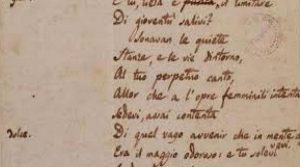 E tu, lieta e il limitare
Di gioventù salivi?
Sonavan le quiete
Stanze, e le vie dintorno,
Al tuo perpetuo canto,
Allor che a l'opre femminili intenta
Sedevi, assai contenta
dolce. Di quel vago avvenir che in mente a
Era il maggio odoroso: e tu solevi